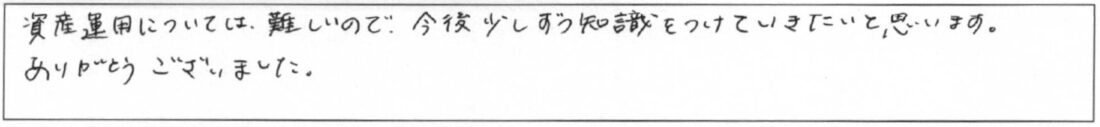 資産運用については、難しいので、今後少しずつ知識をつけていきたいと思います。
ありがとうございました。